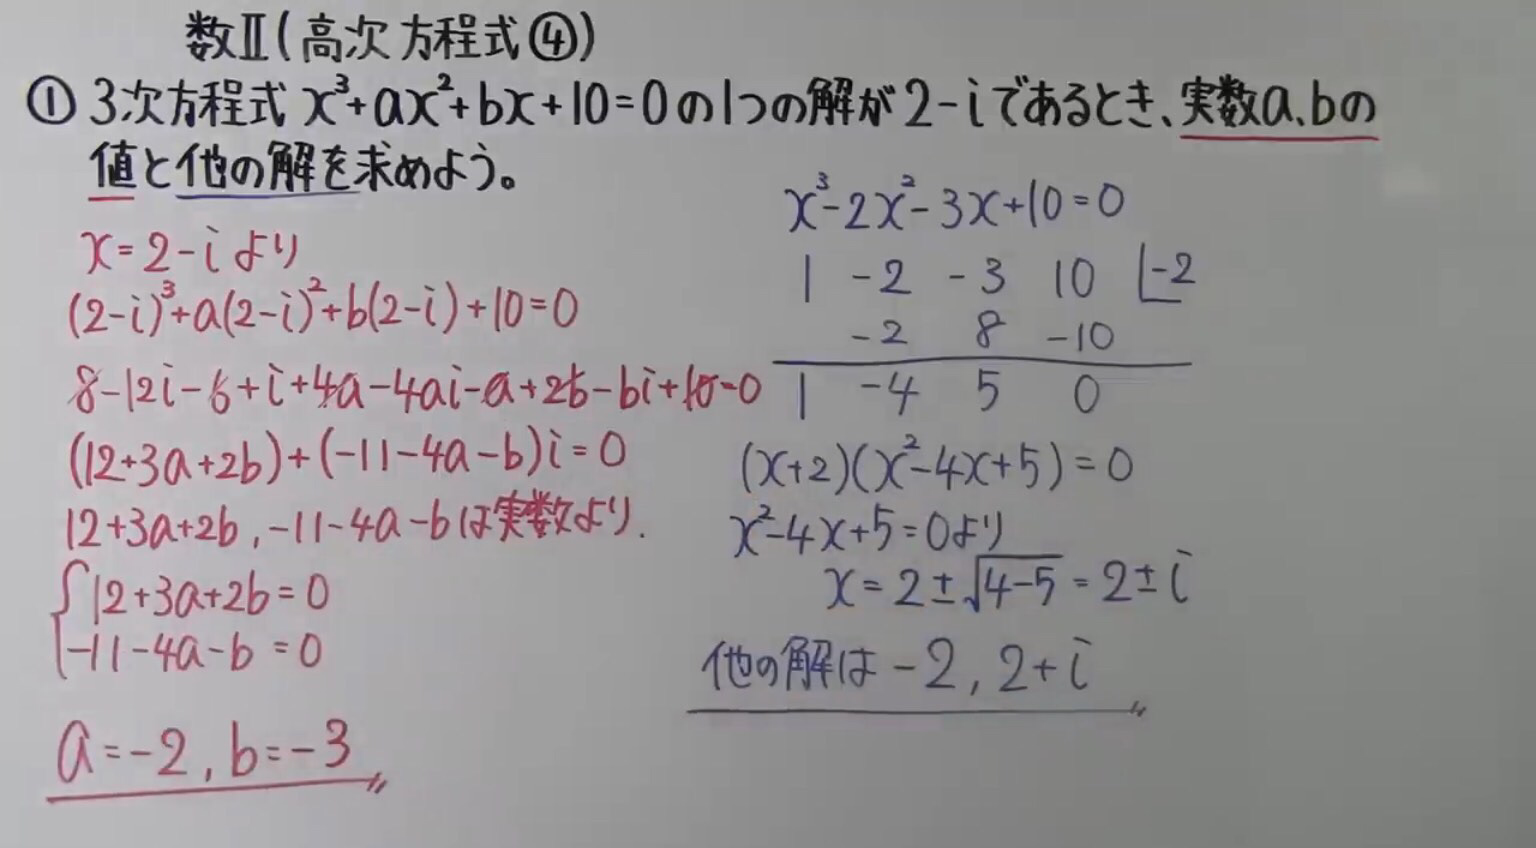 数Ⅱ(高次方程式④)
① 3次方程式 x³+ax²+bx+10=0の1つの解が2-iであるとき、実数a、bの
値と他の解を求めよう。
x=2-iより
(2-i)³+a(2-i)²+b(2-i)+10=0
8-12i-6+i+4a-4ai-a+2b-bi+10=0
(12+3a+2b)+(-11-4a-b)i=0
12+3a+2b, -11-4a-bは実数より.
{12+3a+2b=0
-11-4a-b=0
a=-2, b=-3
x³-2x²-3x+10=0
1 -2 -3 10 |-2
-2 8 -10
1 -4 5 0
(x+2)(x²-4x+5)=0
x²-4x+5=0より
x=2±√4-5=2±i
他の解は -2, 2+i